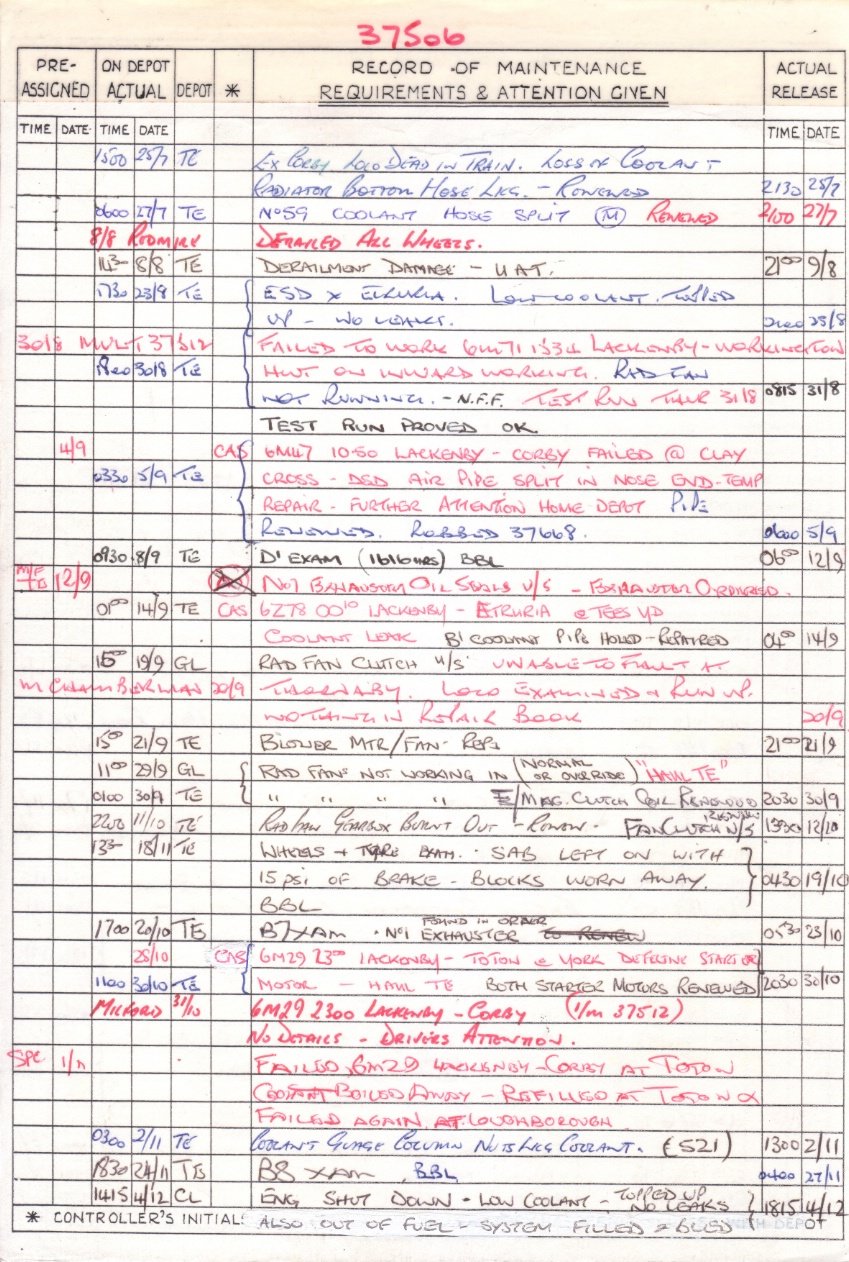 37506
PRE-ASSIGNED ON DEPOT ACTUAL DEPOT * RECORD OF MAINTENANCE REQUIREMENTS & ATTENTION GIVEN ACTUAL RELEASE
TIME DATE TIME DATE TIME DATE
1500 25/7 TE EX CORBY LOCO DEAD IN TRAIN. LOSS OF COOLANT
RADIATOR BOTTOM HOSE LKG. - RENEWED 2130 25/7
0600 27/7 TE No59 COOLANT HOSE SPLIT (M) RENEWED 2100 27/7
8/8 REDMIRE DERAILED ALL WHEELS.
8/8 TE DERAILMENT DAMAGE - UAT. 2100 9/8
1730 23/8 TE ESD X ETRURIA. LOW COOLANT. TOPPED
UP - NO LEAKS. 25/8
30/8 MULT 37512 FAILED TO WORK 6M71 1534 LACKENBY - WORKINGTON
1800 30/8 TE HWT ON INWARD WORKING. RAD FAN
NOT RUNNING. - N.F.F. TEST RUN THUR 31/8 0815 31/8
TEST RUN PROVED OK
4/9 CAS 6M47 10-50 LACKENBY - CORBY FAILED @ CLAY
0330 5/9 TE CROSS - DSD AIR PIPE SPLIT IN NOSE END - TEMP
REPAIR - FURTHER ATTENTION HOME DEPOT PIPE
RENEWED. ROBBED 37668. 0600 5/9
0930 8/9 TE 'D' EXAM (1616 HRS) BBL 0600 12/9
12/9 No1 EXHAUSTER OIL SEALS U/S - EXHAUSTER ORDERED.
0100 14/9 TE CAS 6Z78 0010 LACKENBY - ETRURIA @ TEES YD
COOLANT LEAK B1 COOLANT PIPE HOLED - REPAIRED 0400 14/9
1500 19/9 GL RAD FAN CLUTCH U/S UNABLE TO FAULT AT
M CHAMBERMAN 20/9 THORNABY. LOCO EXAMINED & RUN UP.
NOTHING IN REPAIR BOOK 20/9
1500 21/9 TE BLOWER MTR/FAN REPS 2100 21/9
1100 29/9 GL RAD FANS NOT WORKING IN (NORMAL OR OVERRIDE) "HAUL TE"
0100 30/9 TE " " " " E/MAG. CLUTCH COIL RENEWED 2030 30/9
2200 11/10 TE RAD FAN GEARBOX BURNT OUT - RENEW. FAN CLUTCH U/S RENEW 1330 12/10
18/11 TE WHEELS + TYRE EXAM. SAB LEFT ON WITH
15 PSI OF BRAKE - BLOCKS WORN AWAY. 0430 19/10
BBL
1700 20/10 TE B7 XAM. No1 EXHAUSTER TO RENEW FOUND IN ORDER 0530 23/10
28/10 CAS 6M29 2300 LACKENBY - TOTON @ YORK DEFECTIVE STARTER
1100 30/10 TE MOTOR - HAUL TE BOTH STARTER MOTORS RENEWED 2030 30/10
MILFORD 31/10 6M29 2300 LACKENBY - CORBY (I/M 37512)
NO DETAILS - DRIVERS ATTENTION.
SPC 1/11 FAILED 6M29 LACKENBY - CORBY AT TOTON
COOLANT BOILED AWAY - REFILLED AT TOTON &
FAILED AGAIN AT LOUGHBOROUGH
0300 2/11 TE COOLANT GUAGE COLUMN NUTS LKG COOLANT. (521) 1300 2/11
1830 24/11 TE B8 XAM BBL 0400 27/11
1415 4/12 CL ENG SHUT DOWN - LOW COOLANT - TOPPED UP NO LEAKS 1815 4/12
* CONTROLLER'S INITIAL ALSO OUT OF FUEL SYSTEM FILLED & BLED WITH DEPOT